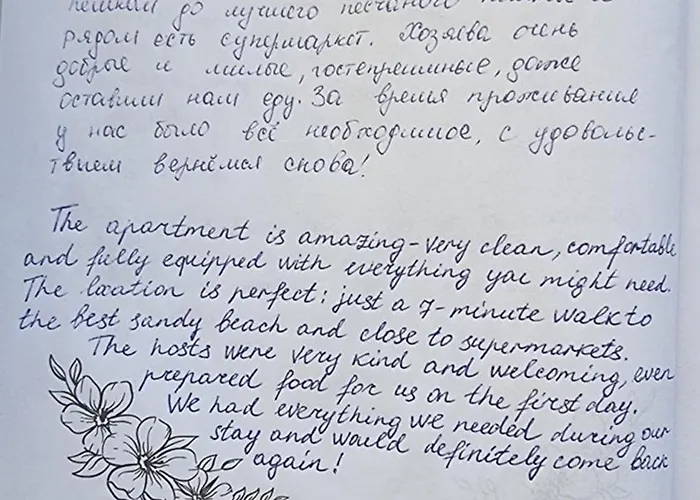 пешком до лучшего песчаного
рядом есть супермаркет. Хозяева очень
добрые и милые, гостеприимные, даже
оставили нам еду. За время проживания
у нас было всё необходимое, с удоволь-
ствием вернёмся снова!
The apartment is amazing - very clean, comfortable
and fully equipped with everything you might need.
The location is perfect: just a 7-minute walk to
the best sandy beach and close to supermarkets.
The hosts were very kind and welcoming, even
prepared food for us on the first day.
We had everything we needed during our
stay and would definitely come back
again!